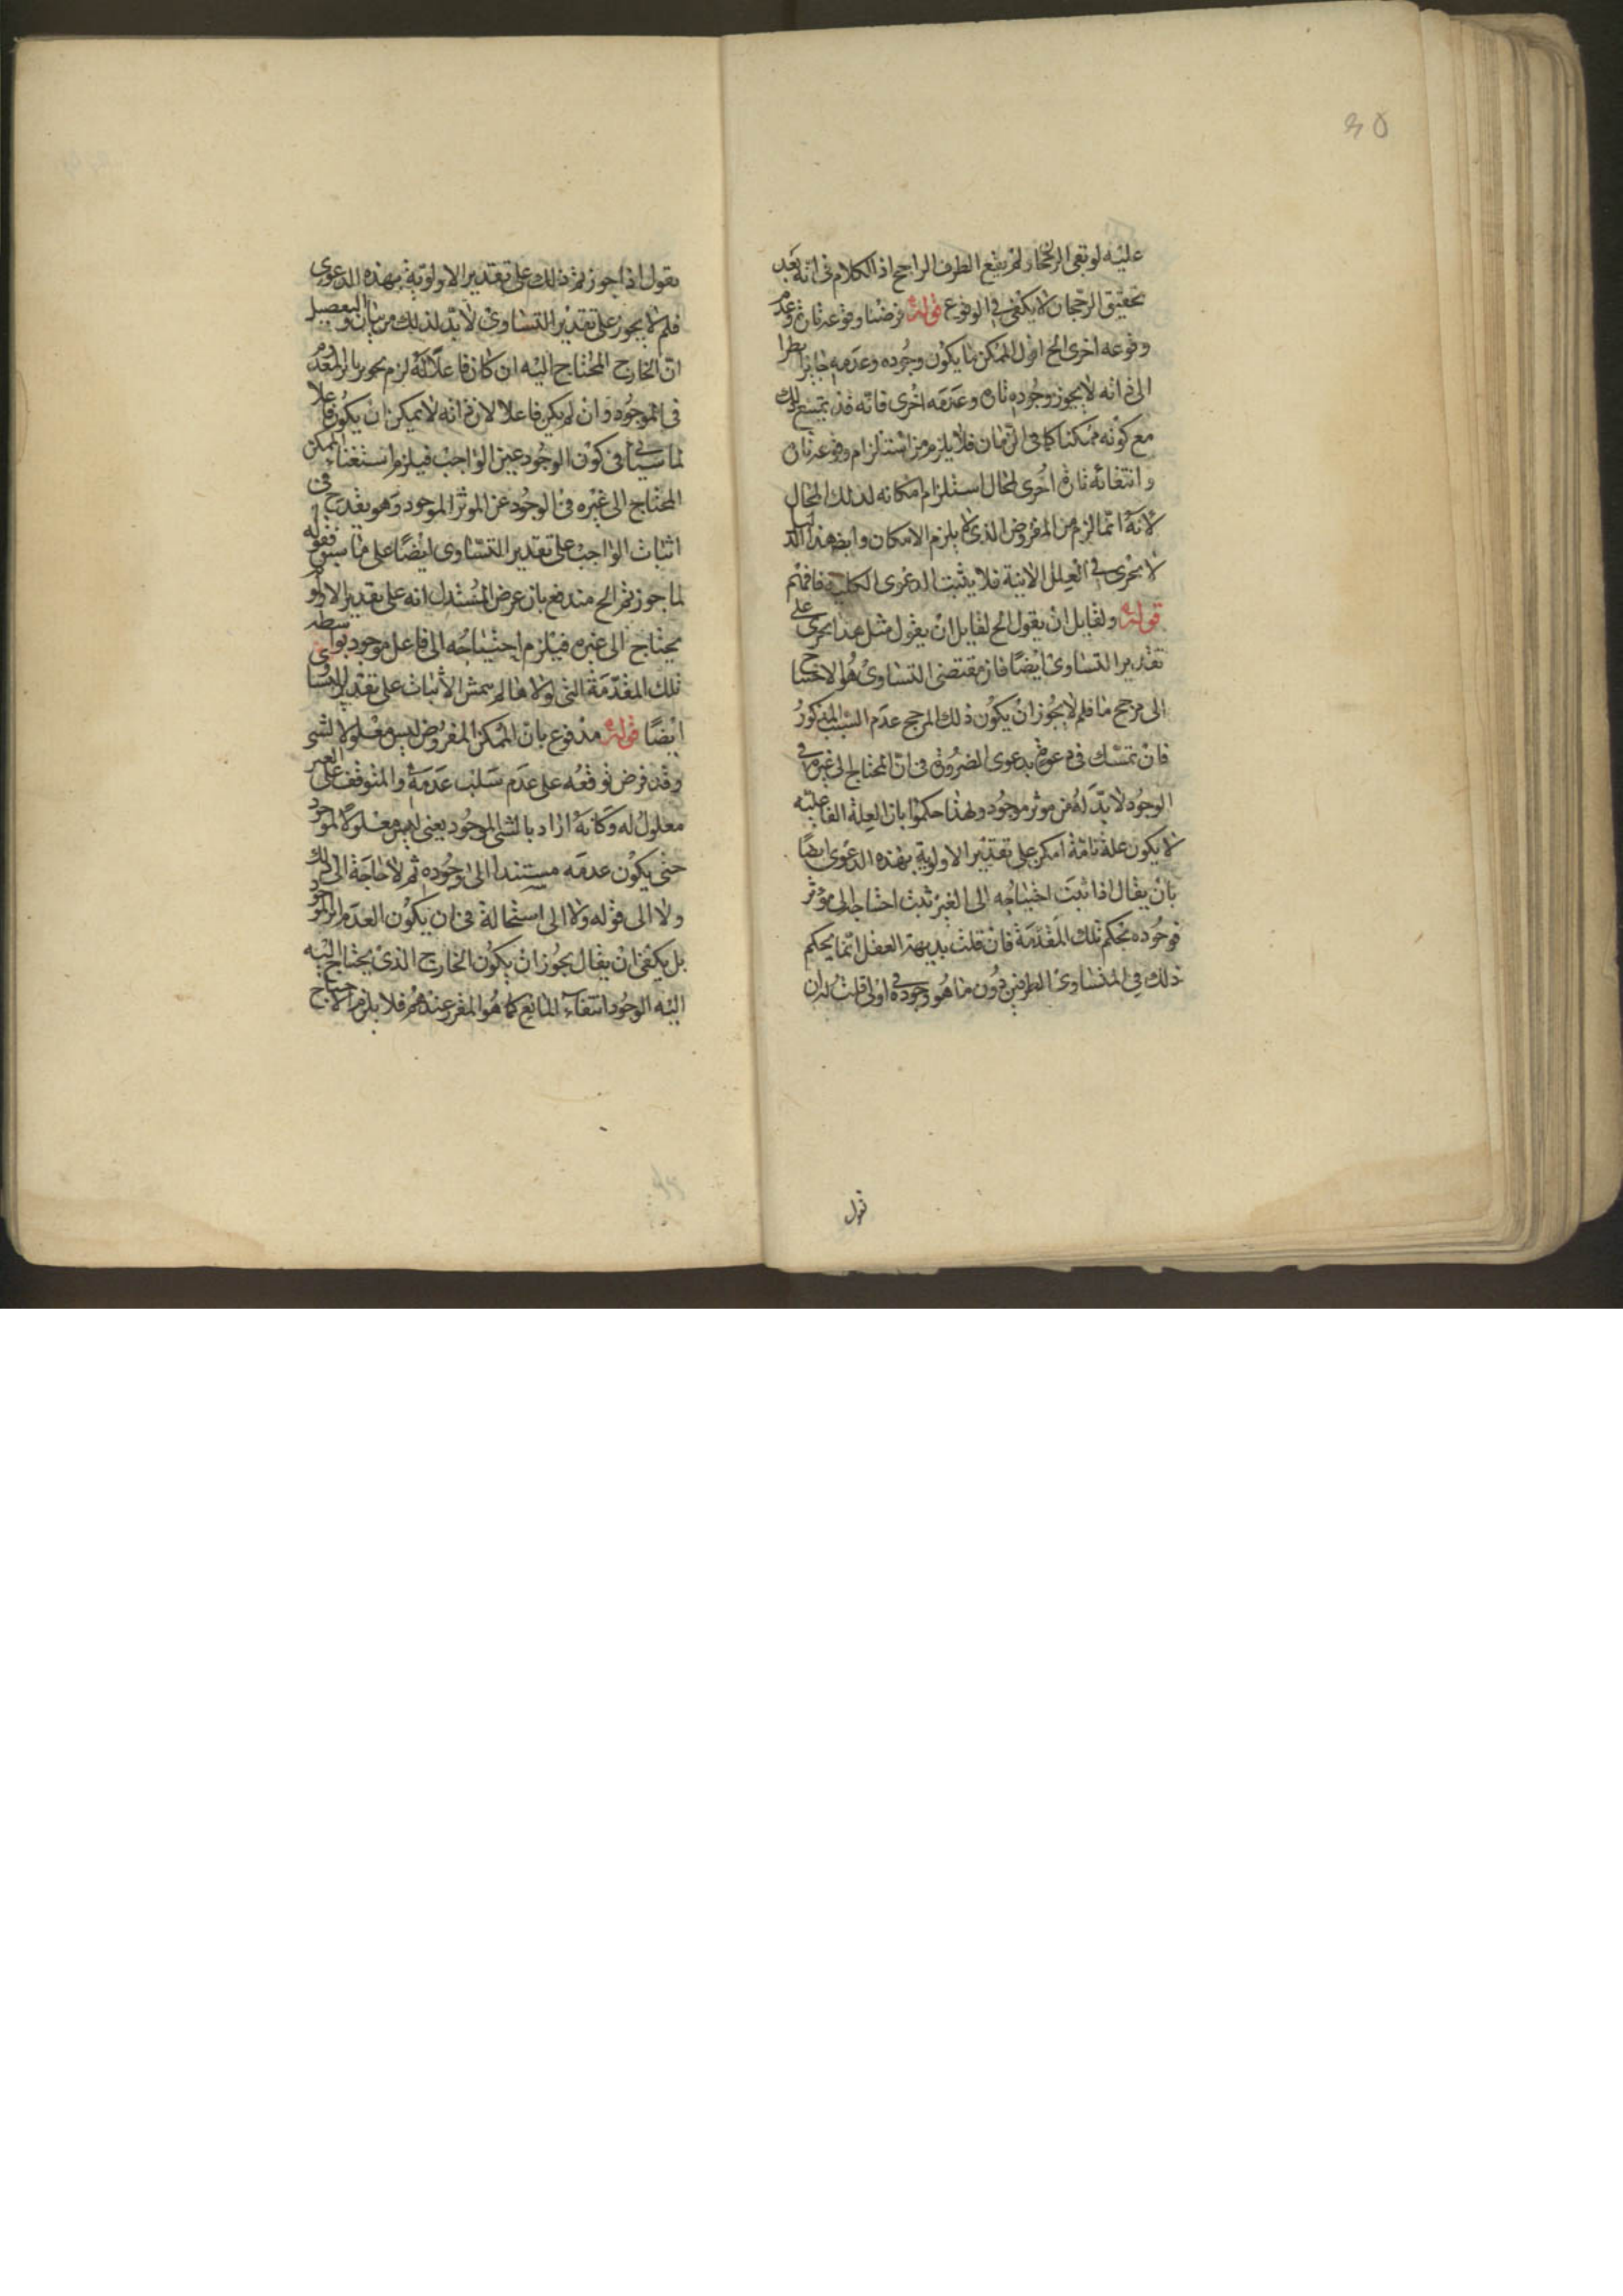 ٤٥
عليه لو بقى الرجحان ولم يقع الطرف الراجح اذ الكلام فى انه بعد
تحقيق الرجحان لا يكفى فى الوقوع قوله فرضنا وقوعه تارة وعدم
وقوعه اخرى الخ اقول الممكن ما يكون وجوده وعدمه جايزا نظرا
الى ذاته لا يجوز وجوده تارة وعدمه اخرى فانه قد يمتنع ذلك
مع كونه ممكنا كما فى الزمان فلا يلزم من استلزام وقوعه تارة
وانتفائه تارة اخرى لمحال استلزام امكانه لذلك المحال
لانه انما لزم من المفروض الذى لا يلزم الامكان وايضا هذا الدليل
لا يجرى فى العلل الآنية فلا يثبت الدعوى الكلية فافهم
قوله ولقايل ان يقول الخ لقايل ان يقول مثل هذا يجرى على
تقدير التساوى ايضا فان مقتضى التساوى هو الاحتياج
الى مرجح ما فلم لا يجوز ان يكون ذلك المرجح عدم السبب المذكور
فان تمسك فى دفعه بدعوى الضرورة فى ان المحتاج الى غيره فى
الوجود لا بد له من موثر موجود ولهذا حكموا بان العلة الفاعلية
لا يكون علة تامة امكن على تقدير الاولوية بهذه الدعوى ايضا
بان يقال اذا ثبت احتياجه الى الغير ثبت احتياجه الى موثر
فوجوده بحكم تلك المقدمة فان قلت بديهة العقل انما يحكم
ذلك فى المتساوى الطرفين دون ما هو وجوده اولى قلت له ان
قول
يقول اذا جوزتم ذلك على تقدير الاولوية بهذه الدعوى
فلم لا يجوز على تقدير التساوى لا بد لذلك من بيان والتفصيل
ان الخارج المحتاج اليه ان كان فاعلا له لزم تجويز تاثير المعدوم
فى الموجود وان لم يكن فاعلا لان ذاته لا يمكن ان يكون فاعلا
لما سيأتى فى كون الوجود عين الواجب فيلزم استغناء الممكن
المحتاج الى غيره فى الوجود عن الموثر الموجود وهو يقدح فى
اثبات الواجب على تقدير التساوى ايضا على ما سبق فقوله
لما جوزتم الخ مندفع بان غرض المستدل انه على تقدير الاولوية
يحتاج الى غيره فيلزم احتياجه الى فاعل موجود بواسطة
تلك المقدمة التى لولاها لم يتمش الاثبات على تقدير التساوى
ايضا قوله مدفوع بان الممكن المفروض ليس معلولا لشى
وقد فرض توقفه على عدم سبب عدمه والمتوقف على الغير
معلول له وكانه اراد بالشى الموجود يعنى ليس معلولا لموجود
حتى يكون عدمه مستندا الى وجوده ثم لا حاجة الى ذلك
ولا الى قوله ولا الى استحالة فى ان يكون العدم اثر الموجود
بل يكفى ان يقال يجوز ان يكون الخارج الذى يحتاج اليه
اليه الوجود انتفاء المانع كما هو المقرر عندهم فلا يلزم الاحتياج